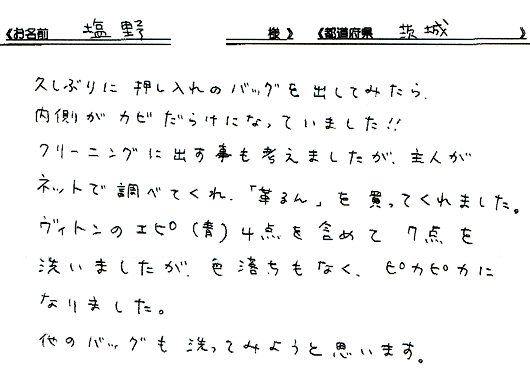 《お名前 塩野 様 》 《都道府県 茨城 》
久しぶりに 押し入れのバッグを出してみたら、
内側が カビだらけになっていました!!
クリーニングに出す事も考えましたが、主人が
ネットで調べてくれ、「革るん」を買ってくれました。
ヴィトンのエピ(青)4点を含めて 7点を
洗いましたが、色落ちもなく、ピカピカに
なりました。
他のバッグも洗ってみようと思います。